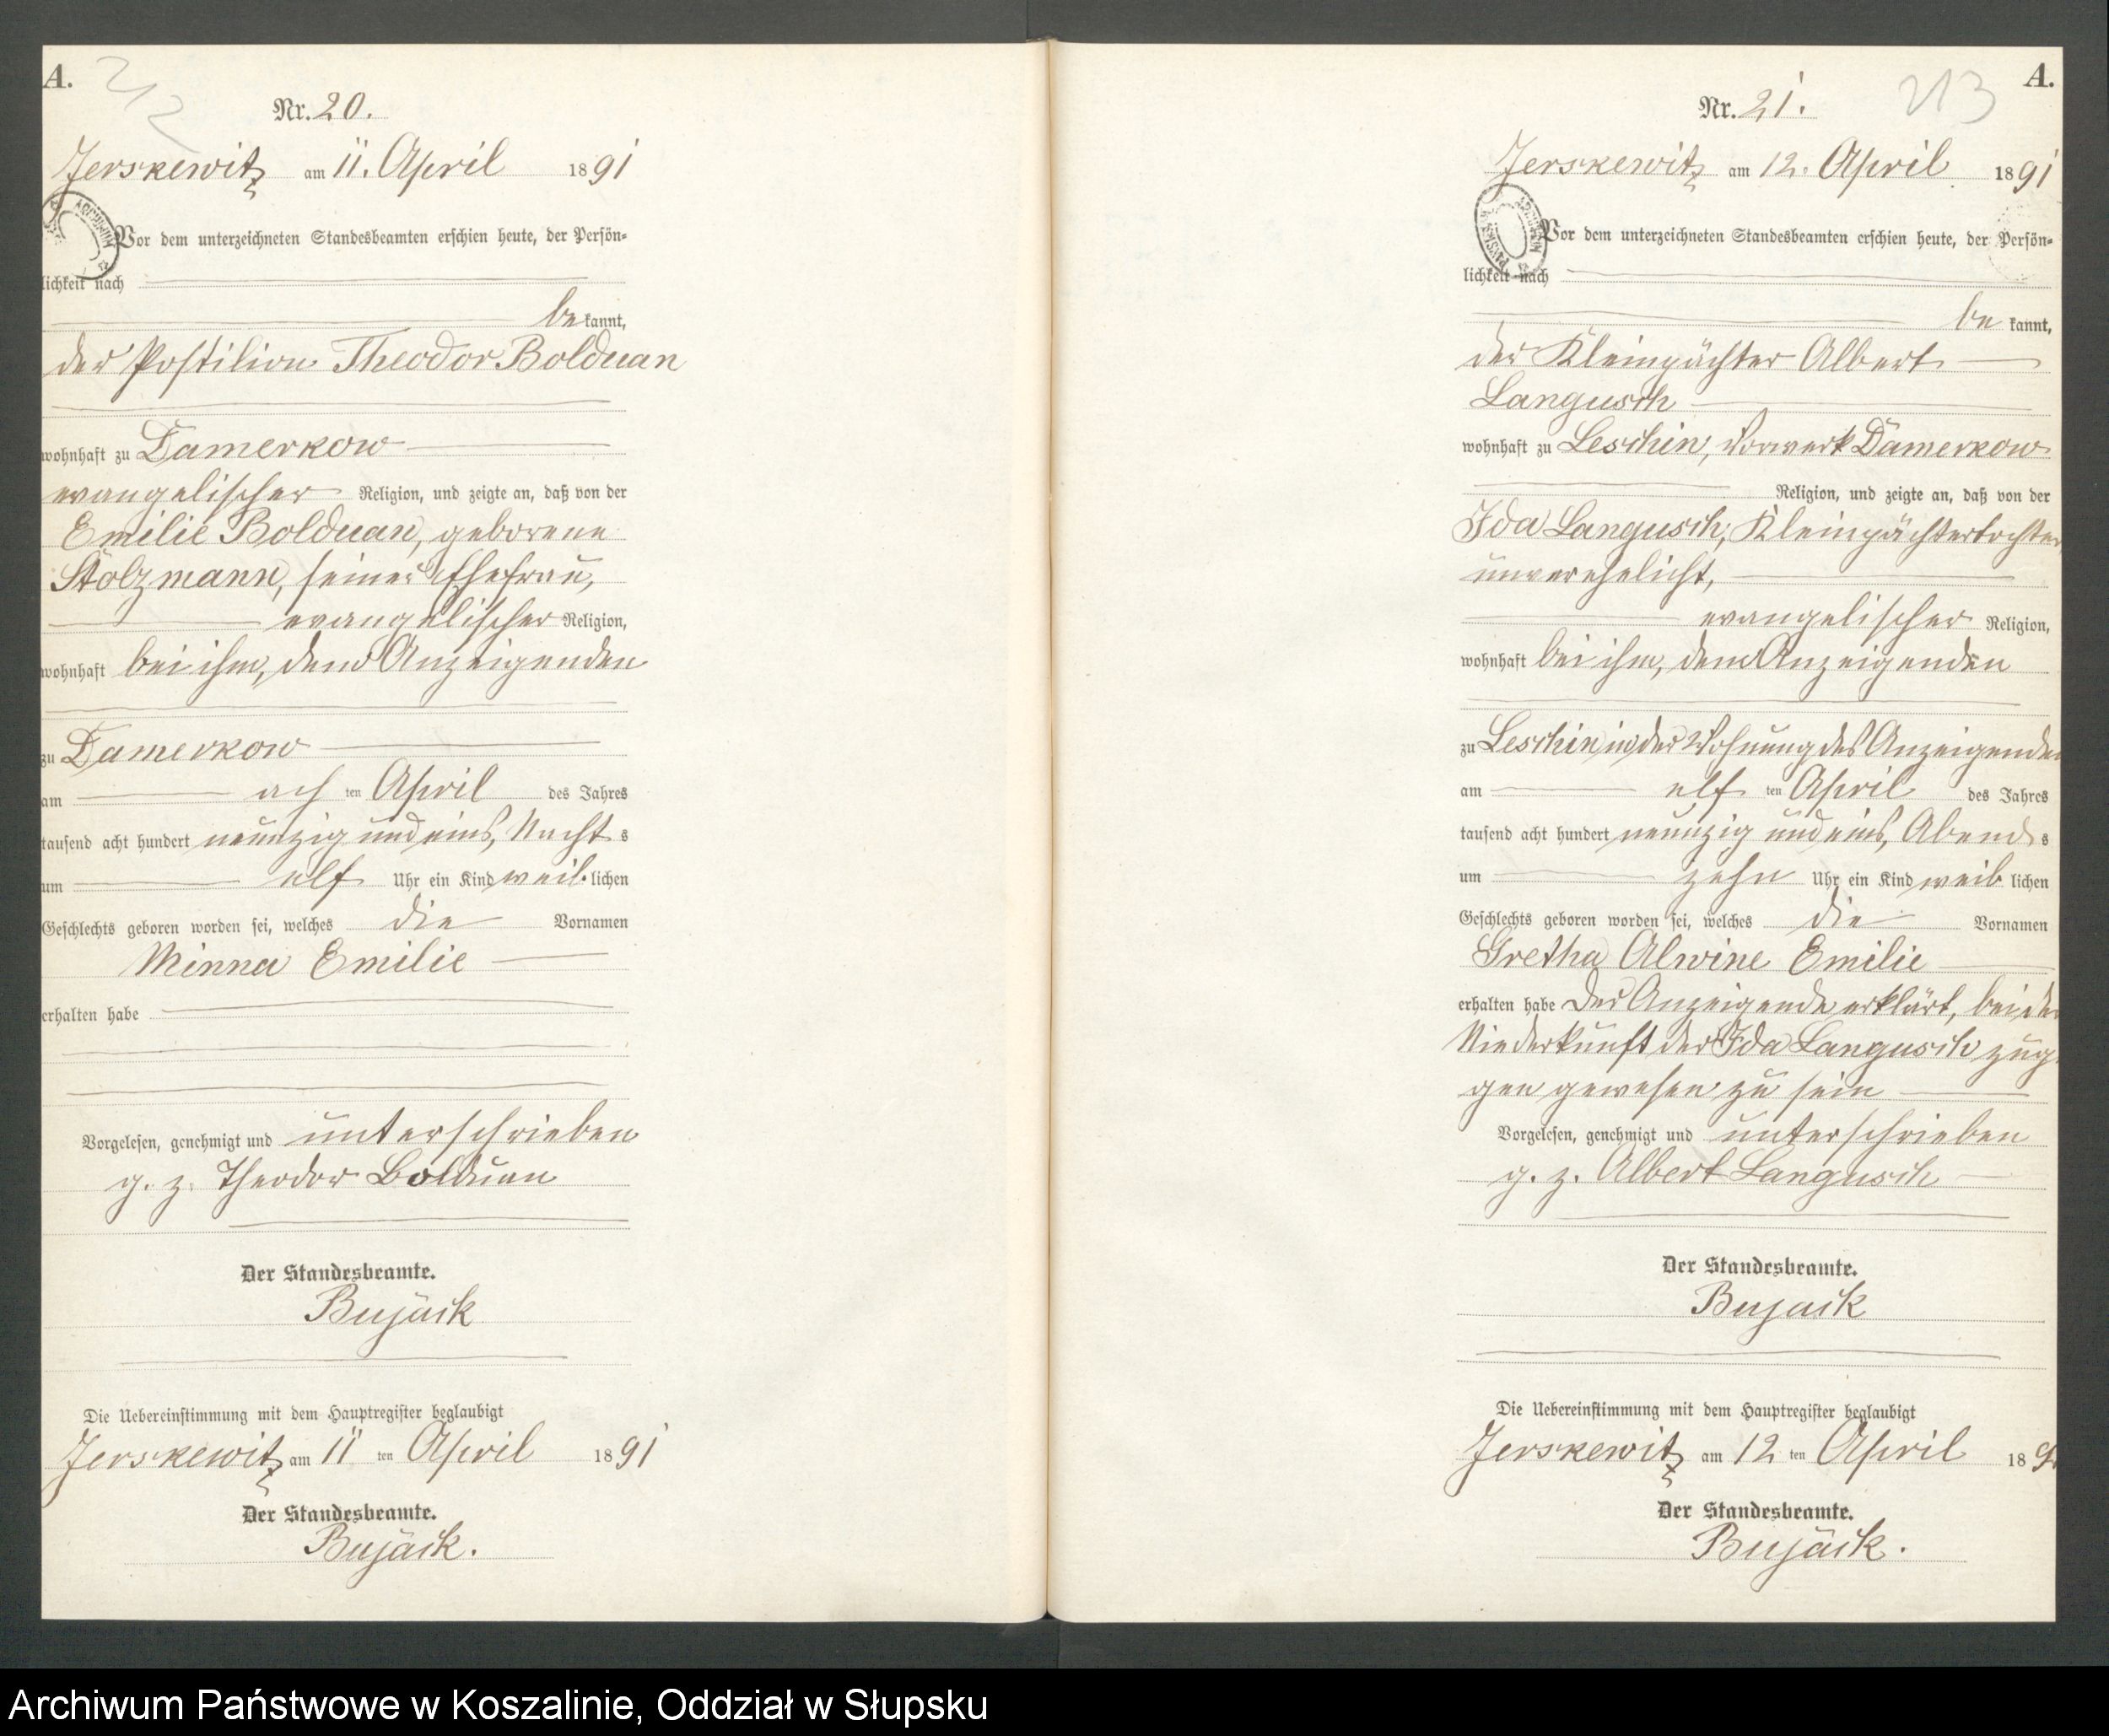 A.
212
Nr. 20.
Jerskewitz am 11. April 1891
Vor dem unterzeichneten Standesbeamten erschien heute, der Persön-
lichkeit nach
be kannt,
der Postilion Theodor Bolduan
wohnhaft zu Damerkow
evangelischer Religion, und zeigte an, daß von der
Emilie Bolduan, geborene
Stolzmann, seiner Ehefrau,
evangelischer Religion,
wohnhaft bei ihm, dem Anzeigenden
zu Damerkow
am ach ten April des Jahres
tausend acht hundert neunzig und eins, Nacht s
um elf Uhr ein Kind weib lichen
Geschlechts geboren worden sei, welches die Vornamen
Minna Emilie
erhalten habe
Vorgelesen, genehmigt und unterschrieben
g. z. Theodor Bolduan
Der Standesbeamte.
Bujack
Die Uebereinstimmung mit dem Hauptregister beglaubigt
Jerskewitz am 11 ten April 1891
Der Standesbeamte.
Bujack.
A.
213
Nr. 21.
Jerskewitz am 12. April 1891
Vor dem unterzeichneten Standesbeamten erschien heute, der Persön-
lichkeit nach
be kannt,
der Kleinpächter Albert
Langusch
wohnhaft zu Leschin, Vorwerk Damerkow
Religion, und zeigte an, daß von der
Ida Langusch, Kleinpächtertochter,
unverehelicht,
evangelischer Religion,
wohnhaft bei ihm, dem Anzeigenden
zu Leschin in der Wohnung des Anzeigenden
am elf ten April des Jahres
tausend acht hundert neunzig und eins, Abend s
um zehn Uhr ein Kind weib lichen
Geschlechts geboren worden sei, welches die Vornamen
Gretha Alwine Emilie
erhalten habe Der Anzeigende erklärt, bei der
Niederkunft der Ida Langusch zuge
gen gewesen zu sein
Vorgelesen, genehmigt und unterschrieben
g. z. Albert Langusch
Der Standesbeamte.
Bujack
Die Uebereinstimmung mit dem Hauptregister beglaubigt
Jerskewitz am 12 ten April 189
Der Standesbeamte.
Bujack.
Archiwum Państwowe w Koszalinie, Oddział w Słupsku